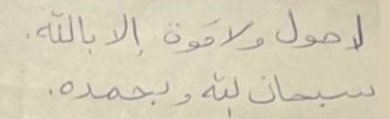 لا حول ولا قوة إلا بالله.
سبحان لله وبحمده.